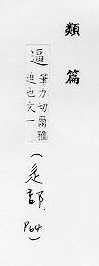 類篇
逼
筆力切爾雅
迫也文一
(辵部.
P64)